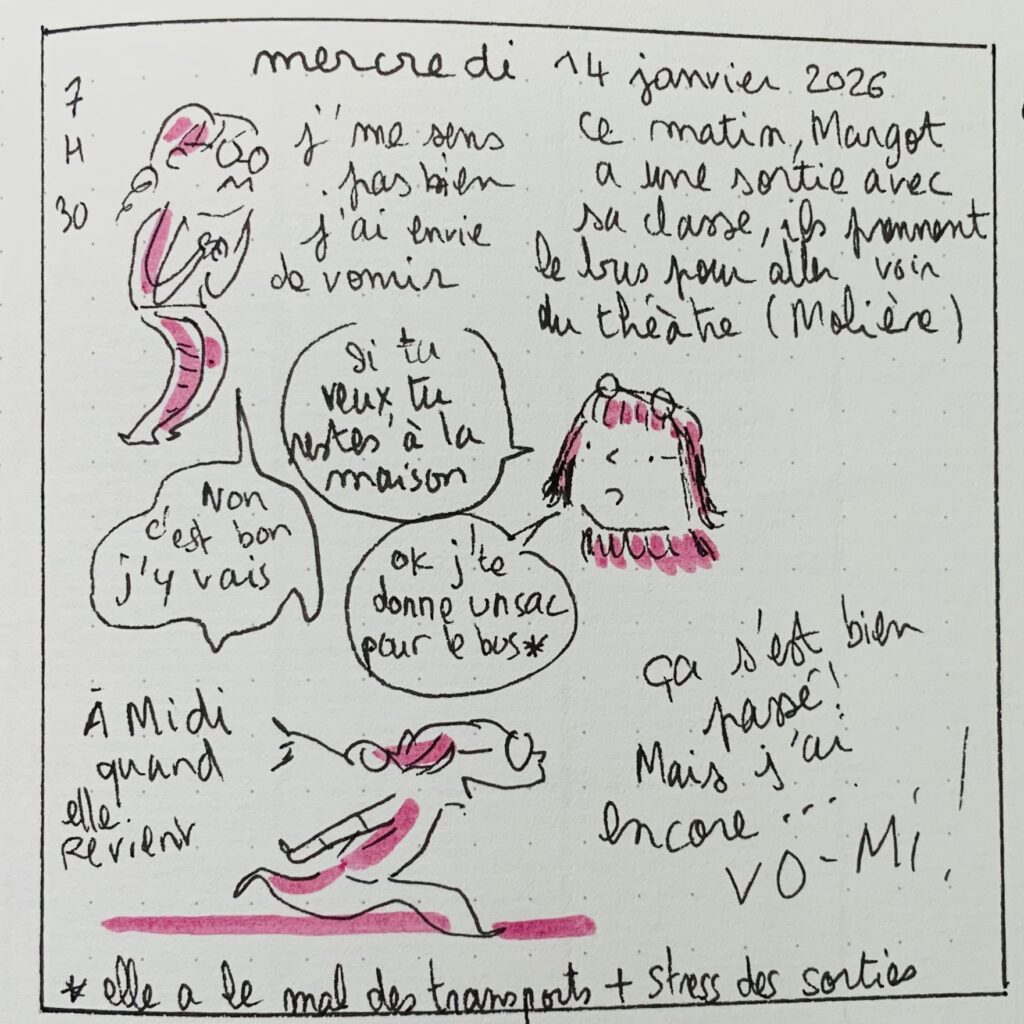 mercredi 14 janvier 2026
7
H
30
j'me sens
pas bien
j'ai envie
de vomir
Ce matin, Margot
a une sortie avec
sa classe, ils prennent
le bus pour aller voir
du théâtre (Molière)
Si tu
veux, tu
restes à la
maison
Non
c'est bon
j'y vais
ok j'te
donne un sac
pour le bus*
À Midi
quand
elle
Revient
ça s'est bien
passé!
Mais j'ai
encore...
VO-Mi!
* elle a le mal des transports + stress des sorties